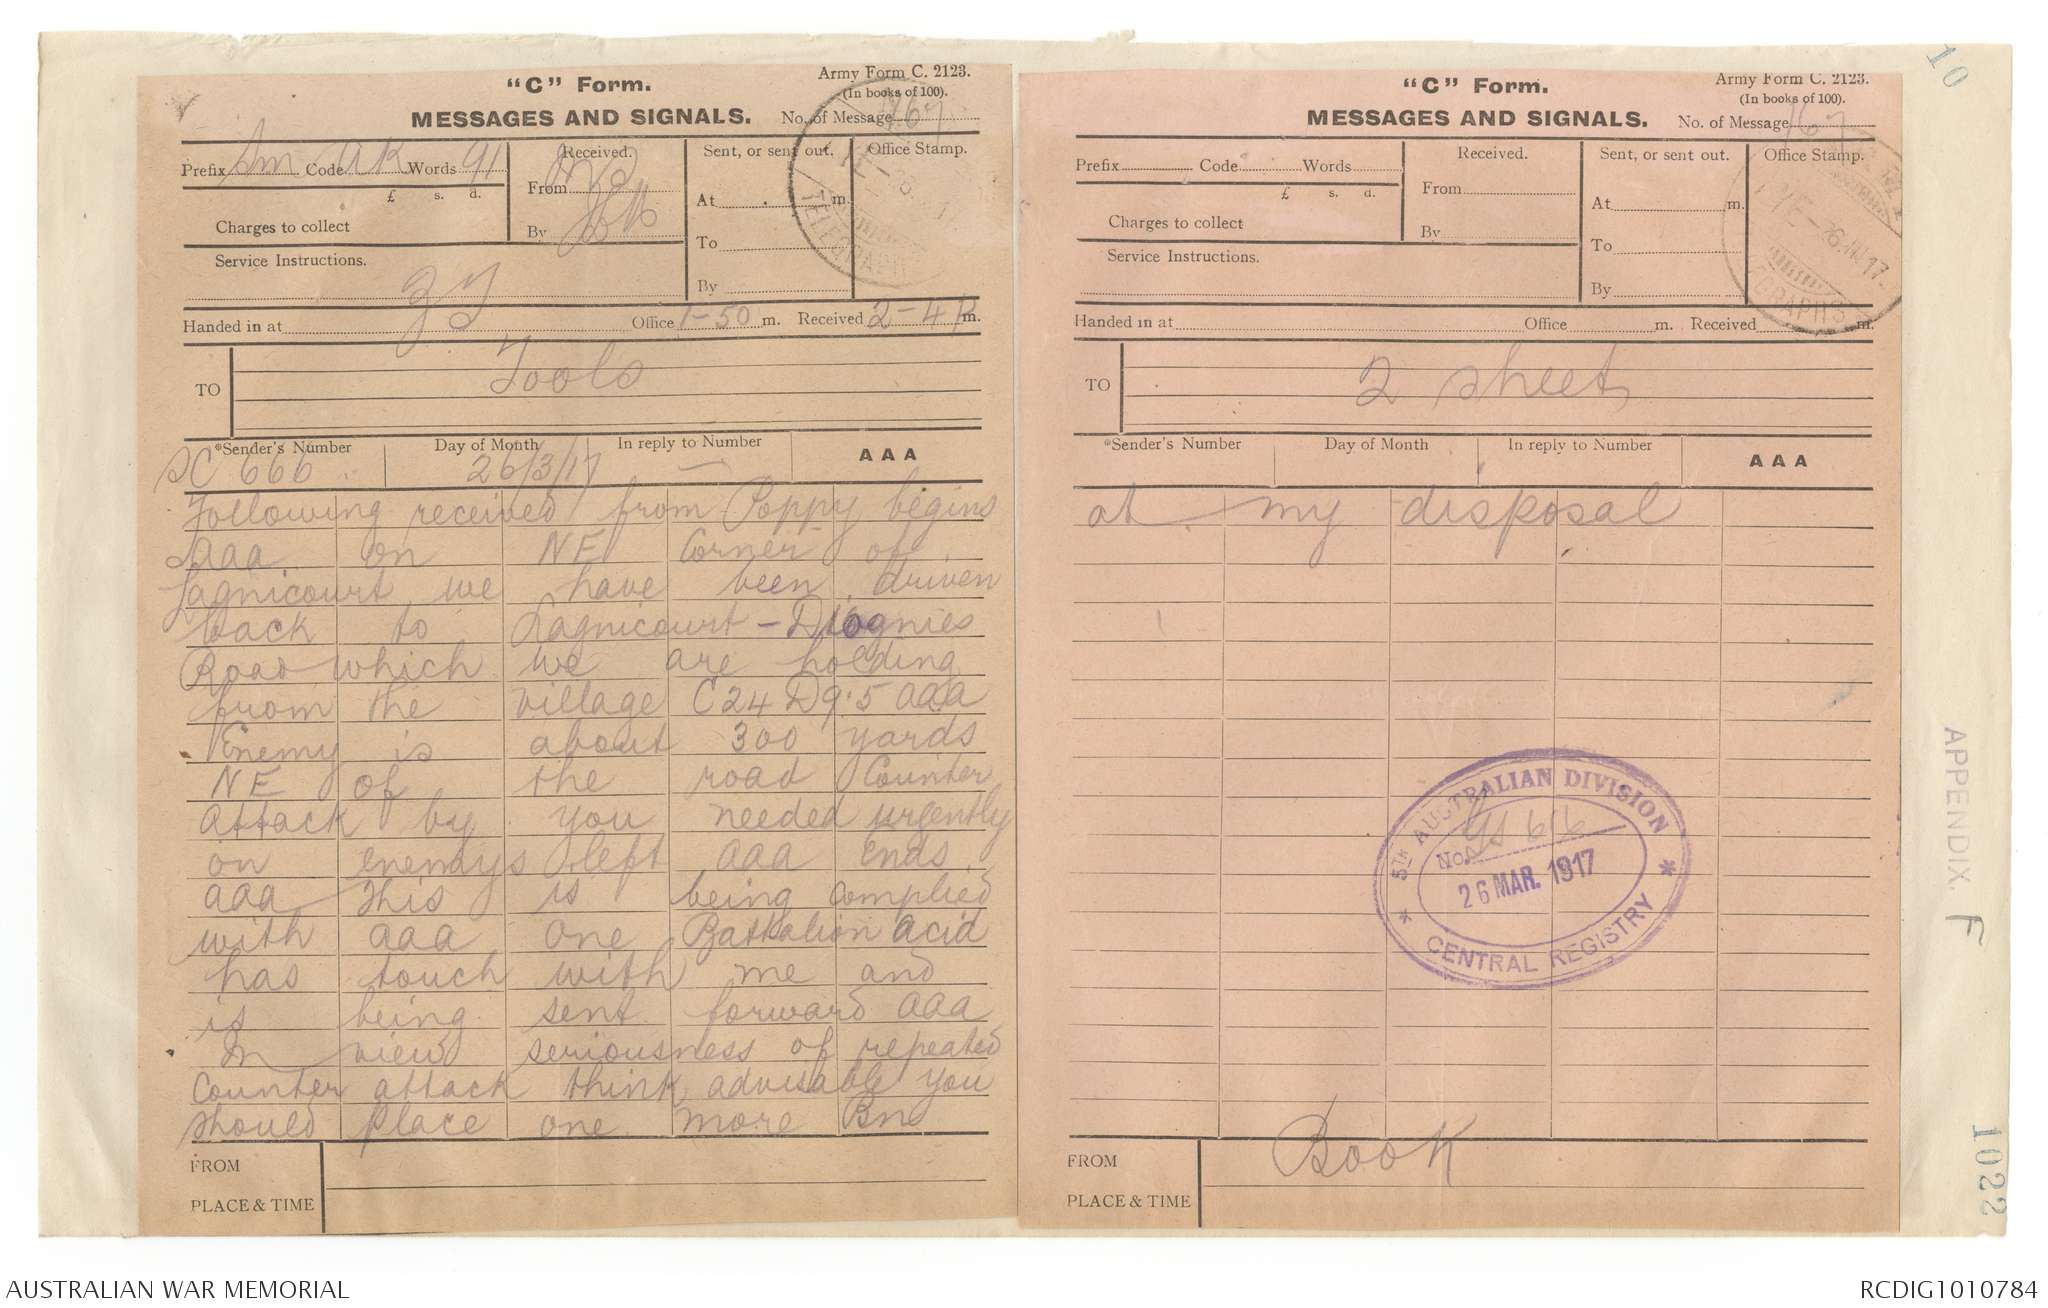 "C" Form.
Army Form C. 2123.
(In books of 100).
MESSAGES AND SIGNALS.
No. of Message 167
Prefix Sm Code AK Words 91
Received.
Sent, or sent out.
Office Stamp.
£ s. d.
From
At m.
Charges to collect
By
To
Service Instructions.
By
TELEGRAPH
Handed in at ZY Office 1-50 m. Received 2-4 P m.
TO Tools
*Sender's Number
Day of Month
In reply to Number
AAA
SC 666
26/3/17
Following received from Poppy begins
aaa on NE Corner of
Lagnicourt we have been driven
back to Lagnicourt - Doignies
Road which we are holding
from the village C24 D9.5 aaa
Enemy is about 300 yards
NE of the road Counter
attack by you needed urgently
on enemys left aaa ends
aaa This is being complied
with aaa one Battalion acid
has touch with me and
is being sent forward aaa
In view seriousness of repeated
Counter attack think advisable you
should place one more Bn
FROM
PLACE & TIME
"C" Form.
Army Form C. 2123.
(In books of 100).
MESSAGES AND SIGNALS.
No. of Message 167
Prefix Code Words
Received.
Sent, or sent out.
Office Stamp.
£ s. d.
From
At m.
Charges to collect
By
To
Service Instructions.
By
Handed in at Office m. Received m.
TO 2 sheet
*Sender's Number
Day of Month
In reply to Number
AAA
at my disposal
5TH AUSTRALIAN DIVISION
No. GS 616
26 MAR. 1917
CENTRAL REGISTRY
FROM Book
PLACE & TIME
10
APPENDIX. F
1022
AUSTRALIAN WAR MEMORIAL
RCDIG1010784